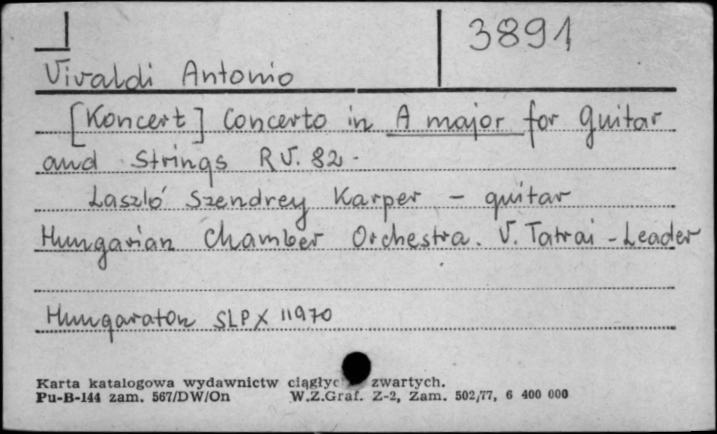 3891
Vivaldi Antonio
[Koncert] Concerto in A major for guitar
and Strings RV. 82.
László Szendrey Karper - guitar
Hungarian Chamber Orchestra. V. Tatrai - Leader
Hungaraton SLPX 11970
Karta katalogowa wydawnictw zwartych.
Pu-B-144 zam. 567/DW/On W.Z.Graf. Z-2, Zam. 502/77, 6 400 000